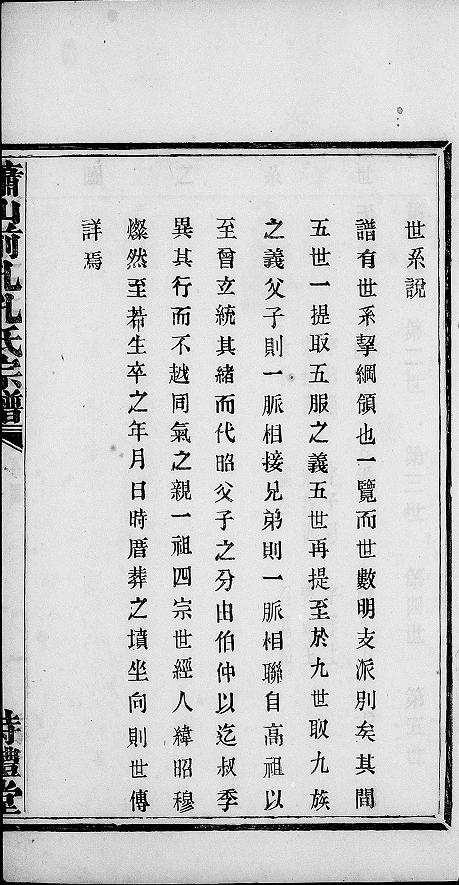 世系說
譜有世系挈綱領也一覽而世數明支派別矣其間
五世一提取五服之義五世再提至於九世取九族
之義父子則一脈相接兄弟則一脈相聯自高祖以
至曾玄統其緒而代昭父子之分由伯仲以迄叔季
異其行而不越同氣之親一祖四宗世經人緯昭穆
燦然至若生卒之年月日時厝葬之墳坐向則世傳
詳焉
蕭山前孔孔氏宗譜
詩禮堂